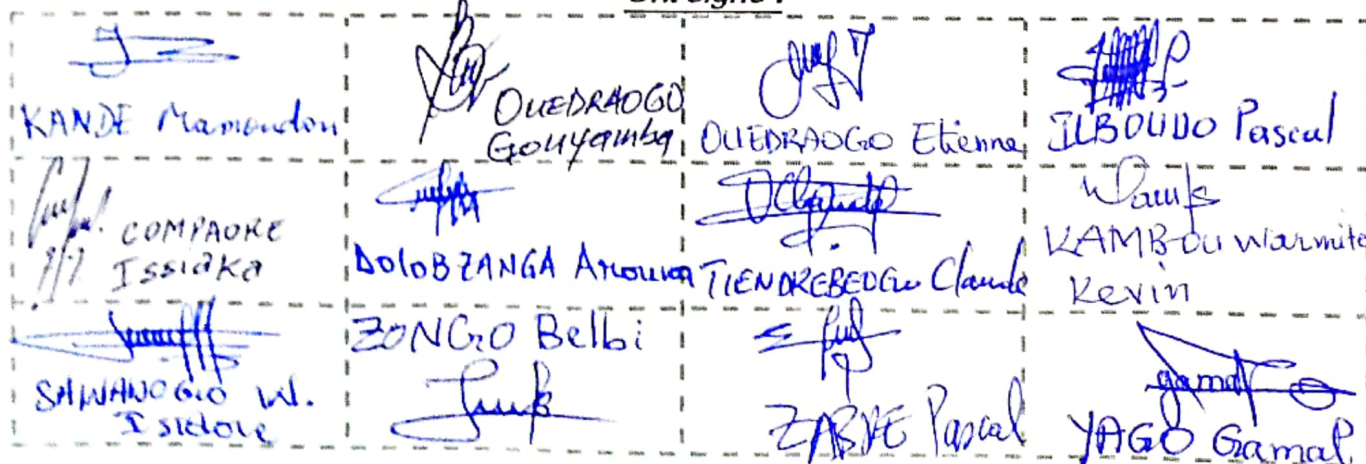 Ont signé :
KANDE Mamoudou
OUEDRAOGO
Gouyamba
OUEDRAOGO Etienne
ILBOUDO Pascal
COMPAORE
Issiaka
DOLOBZANGA Arouna
TIENDREBEOGO Claude
KAMBOU Warmite
Kevin
SAWANOGO W.
Isidore
ZONGO Belbi
ZABRE Pascal
gamal
YAGO Gamal.